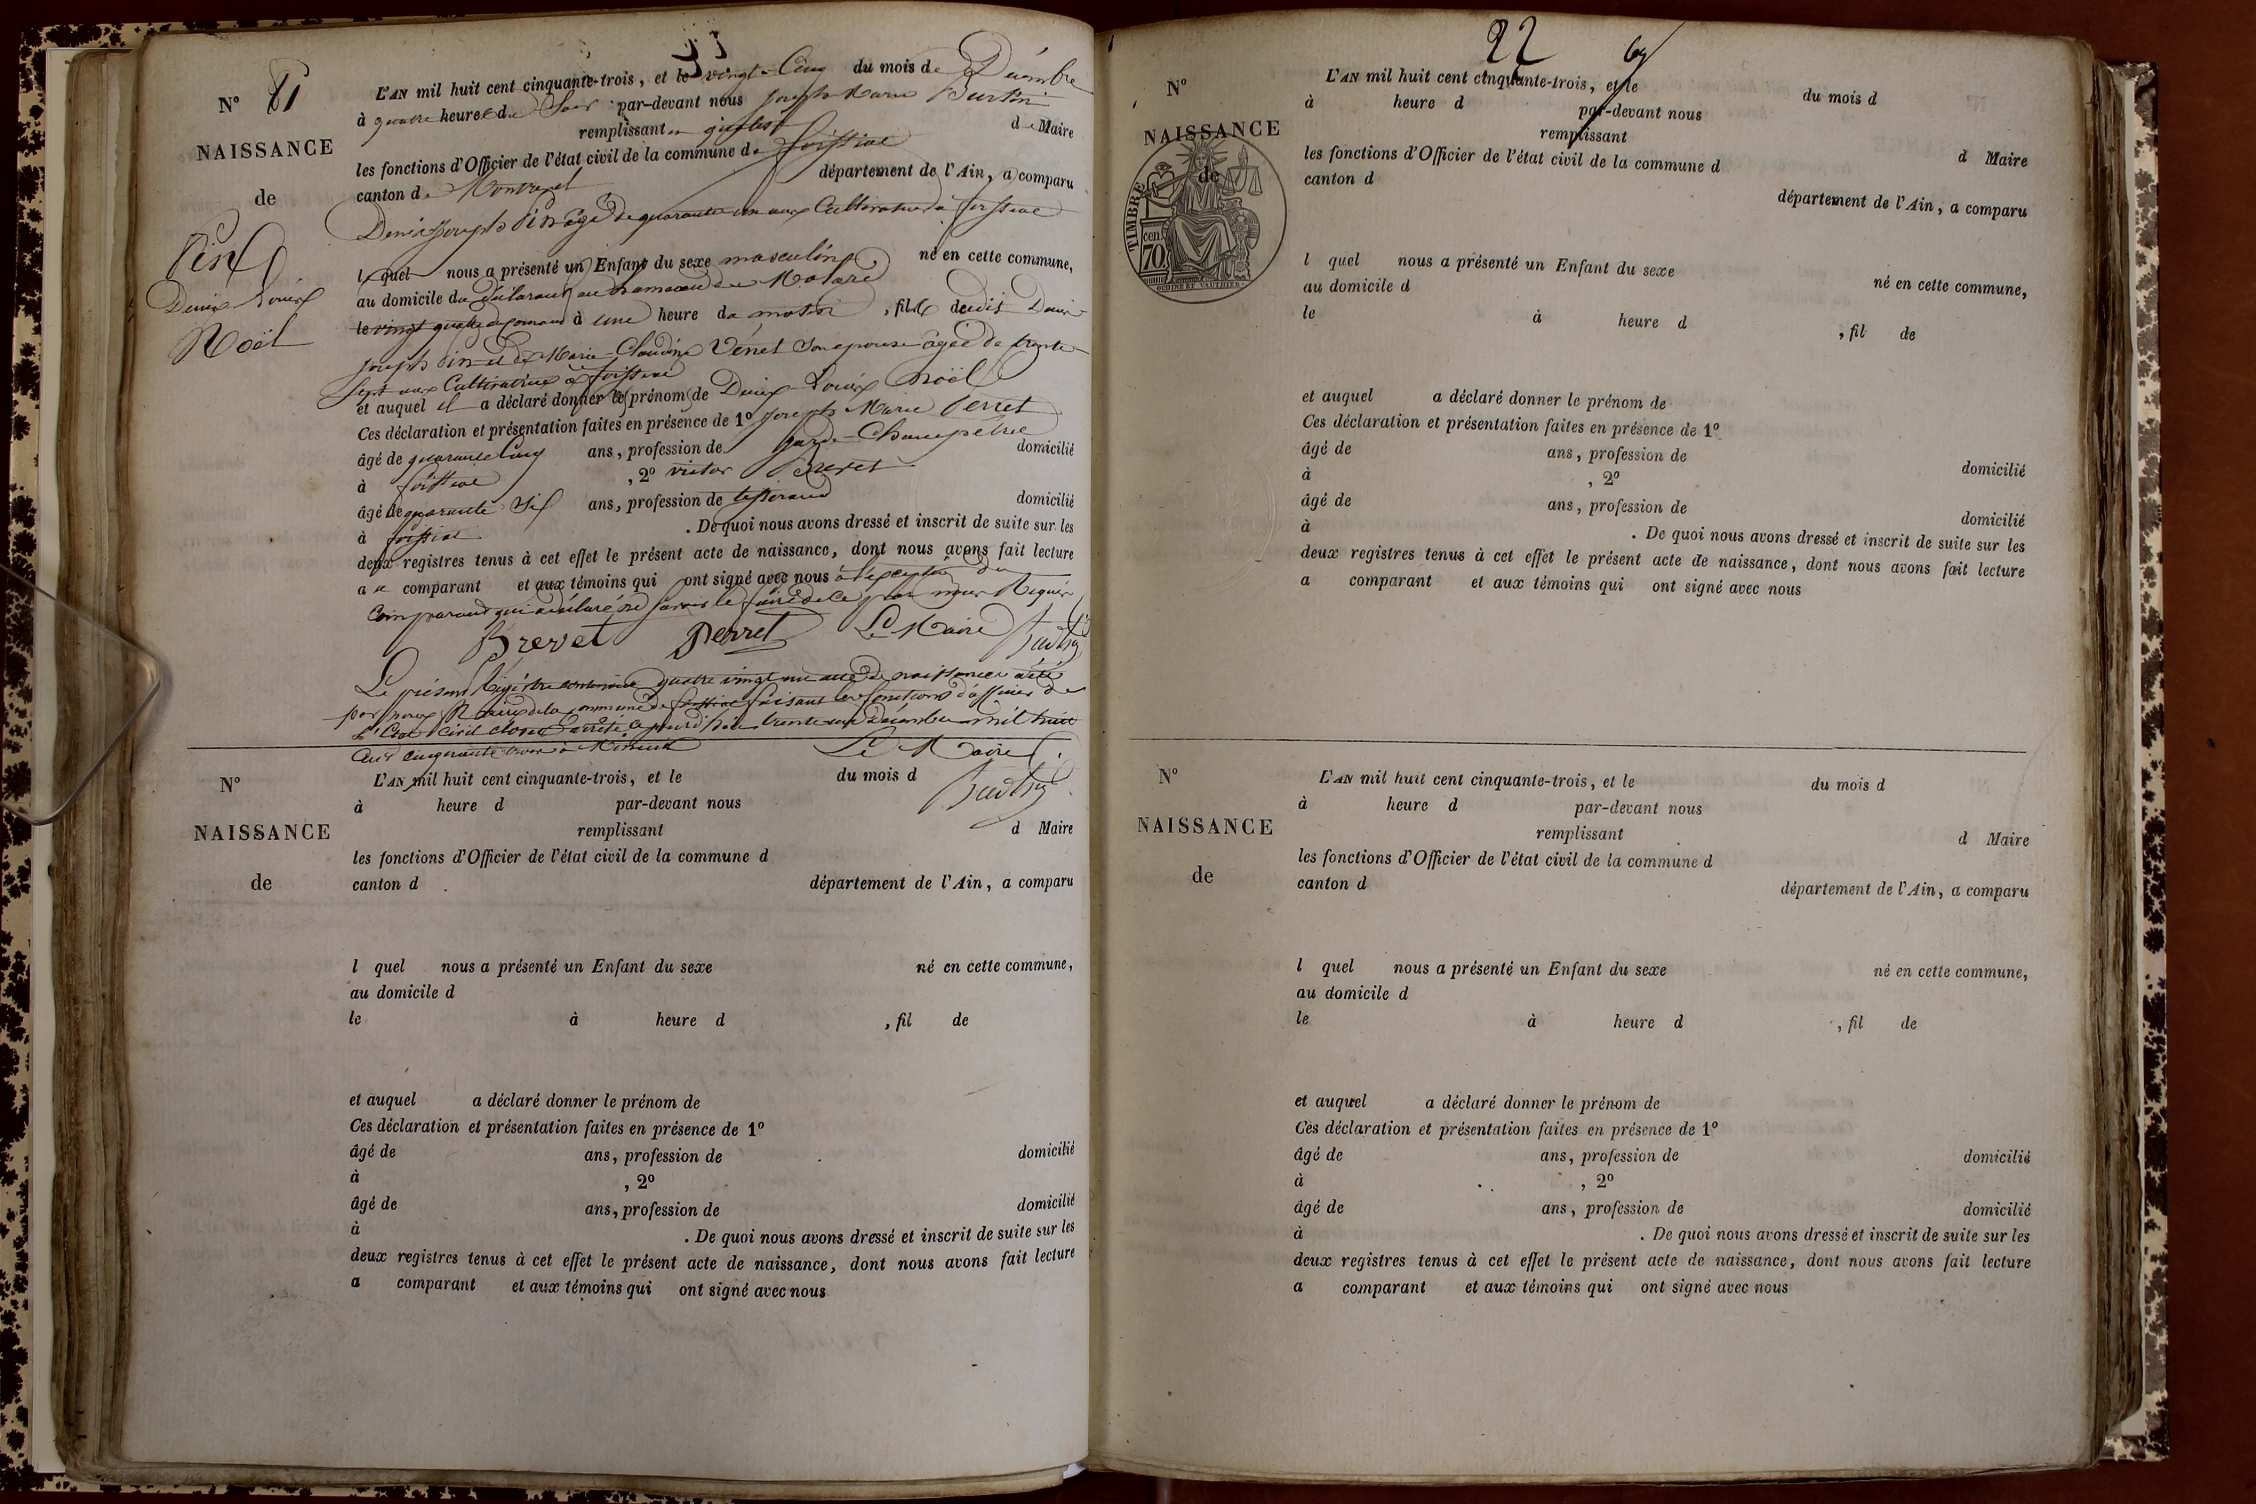 N° 81
NAISSANCE
de
Pin
Denis Louis
Noël
L'AN mil huit cent cinquante-trois, et le vingt-Cinq du mois de Décembre
à quatre heures du Soir par-devant nous Joseph Marie
remplissant en qualité de Maire
les fonctions d'Officier de l'état civil de la commune de foissiat
canton de Montrevel département de l'Ain, a comparu
Denis Joseph Pin âgé de quarante un ans Cultivateur à foissiat
lequel nous a présenté un Enfant du sexe masculin né en cette commune,
au domicile du déclarant au hameau de
le vingt quatre du courant à une heure du matin, fils dudit Denis
Joseph Pin et de Marie-Claudine Vénet Son épouse âgée de trente
Sept ans Cultivatrice à foissiat
et auquel il a déclaré donner les prénom de Denis Louis Noël
Ces déclaration et présentation faites en présence de 1° Joseph Marie Perret
âgé de quarante Cinq ans, profession de garde-Champêtre domicilié
à foissiat, 2° victor Brevet
âgé de quarante Six ans, profession de tisserand domicilié
à foissiat. De quoi nous avons dressé et inscrit de suite sur les
deux registres tenus à cet effet le présent acte de naissance, dont nous avons fait lecture
au comparant et aux témoins qui ont signé avec nous à l'exception du
Comparant qui a déclaré ne savoir le faire de ce par nous Requis
Brevet Perret Le Maire
Le présent Régistre contenant quatre vingt un acte de naissance a été
par nous Maire de la commune de foissiat faisant les fonctions d'officier de
l'Etat Civil clos et arrêté ce jourd'hui trente un décembre mil huit
Cent cinquante trois à Minuit Le Maire
N°
NAISSANCE
de
L'AN mil huit cent cinquante-trois, et le du mois d
à heure d par-devant nous
remplissant d Maire
les fonctions d'Officier de l'état civil de la commune d
canton d département de l'Ain, a comparu
l quel nous a présenté un Enfant du sexe né en cette commune,
au domicile d
le à heure d , fil de
et auquel a déclaré donner le prénom de
Ces déclaration et présentation faites en présence de 1°
âgé de ans, profession de domicilié
à , 2°
âgé de ans, profession de domicilié
à . De quoi nous avons dressé et inscrit de suite sur les
deux registres tenus à cet effet le présent acte de naissance, dont nous avons fait lecture
a comparant et aux témoins qui ont signé avec nous
22
N°
NAISSANCE
de
TIMBRE
70 cen.
L'AN mil huit cent cinquante-trois, et le du mois d
à heure d par-devant nous
remplissant d Maire
les fonctions d'Officier de l'état civil de la commune d
canton d département de l'Ain, a comparu
l quel nous a présenté un Enfant du sexe né en cette commune,
au domicile d
le à heure d , fil de
et auquel a déclaré donner le prénom de
Ces déclaration et présentation faites en présence de 1°
âgé de ans, profession de domicilié
à , 2°
âgé de ans, profession de domicilié
à . De quoi nous avons dressé et inscrit de suite sur les
deux registres tenus à cet effet le présent acte de naissance, dont nous avons fait lecture
a comparant et aux témoins qui ont signé avec nous
N°
NAISSANCE
de
L'AN mil huit cent cinquante-trois, et le du mois d
à heure d par-devant nous
remplissant d Maire
les fonctions d'Officier de l'état civil de la commune d
canton d département de l'Ain, a comparu
l quel nous a présenté un Enfant du sexe né en cette commune,
au domicile d
le à heure d , fil de
et auquel a déclaré donner le prénom de
Ces déclaration et présentation faites en présence de 1°
âgé de ans, profession de domicilié
à , 2°
âgé de ans, profession de domicilié
à . De quoi nous avons dressé et inscrit de suite sur les
deux registres tenus à cet effet le présent acte de naissance, dont nous avons fait lecture
a comparant et aux témoins qui ont signé avec nous